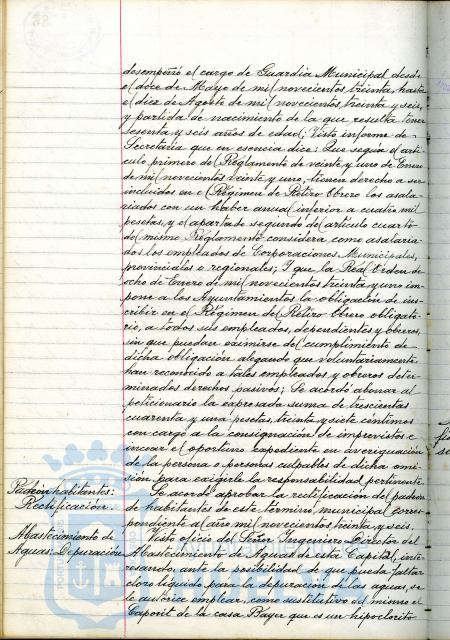 desempeñó el cargo de Guardia Municipal desde
el doce de Mayo de mil novecientos treinta, hasta
el diez de Agosto de mil novecientos treinta y seis,
y partida de nacimiento de la que resulta tener
sesenta y seis años de edad; Visto informe de
Secretaría que en esencia dice: Que según el artí-
culo primero del Reglamento de veinte y uno de Enero
de mil novecientos veinte y uno, tienen derecho a ser
incluidos en el Régimen de Retiro Obrero los asala-
riados con un haber anual inferior a cuatro mil
pesetas, y el apartado segundo del artículo cuarto
del mismo Reglamento considera como asalaria-
dos los empleados de Corporaciones Municipales,
provinciales o regionales; Y que la Real Orden de
ocho de Enero de mil novecientos treinta y uno im-
pone a los Ayuntamientos la obligación de ins-
cribir en el Régimen del Retiro Obrero obligato-
rio, a todos sus empleados, dependientes y obreros,
sin que puedan eximirse del cumplimiento de
dicha obligación alegando que voluntariamente
han reconocido a tales empleados y obreros deter-
minados derechos pasivos; Se acordó abonar al
peticionario la expresada suma de trescientas
cuarenta y una pesetas, treinta y siete céntimos
con cargo a la consignación de imprevistos e
incoar el oportuno expediente en averiguación
de la persona o personas culpables de dicha omi-
sión para exigirle la responsabilidad pertinente.
Padrón habitantes: Se acordó aprobar la rectificación del padrón
Rectificación. de habitantes de este término municipal corres-
pondiente al año mil novecientos treinta y seis.
Abastecimiento de Visto oficio del Señor Ingeniero Director del
Aguas: Depuración Abastecimiento de Aguas de esta Capital, inte-
resando, ante la posibilidad de que pueda faltar
cloro líquido para la depuración de las aguas, se
le autorice emplear, como sustitutivo del mismo el
Caporit de la casa Bayer que es un hipoclorito